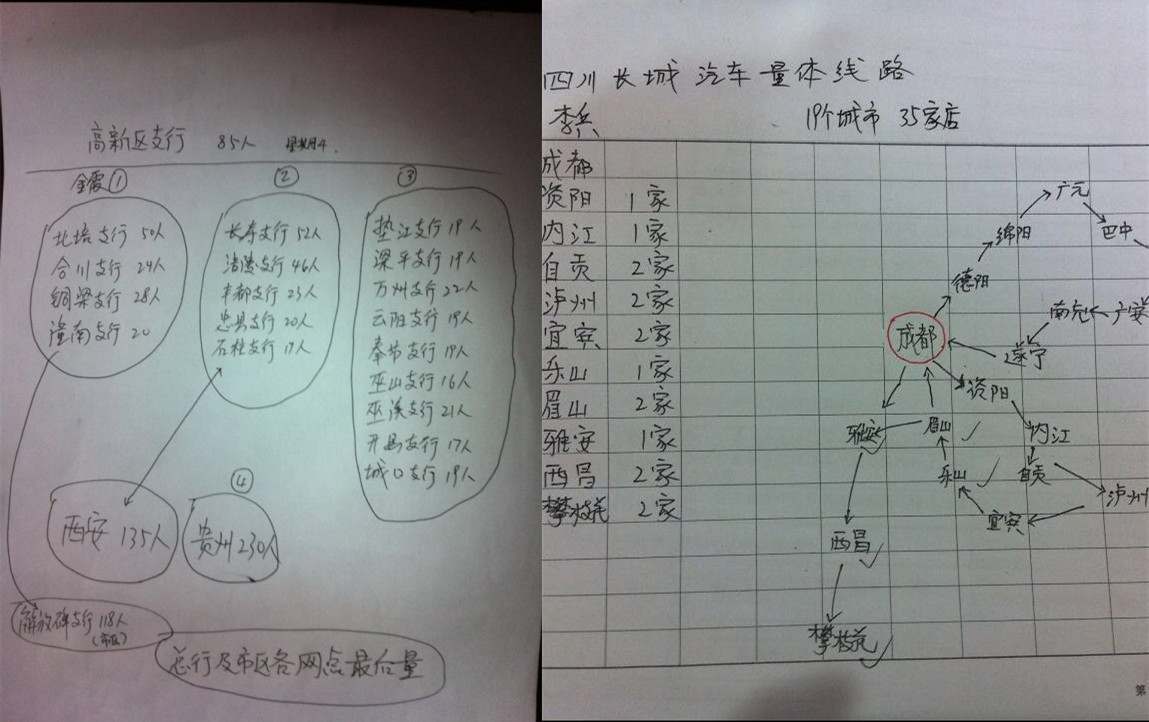 高新区支行 85人 星期4.
金霞① ② ③
北培支行 50人
合川支行 24人
铜梁支行 28人
潼南支行 20
长寿支行 52人
涪陵支行 46人
丰都支行 23人
忠县支行 20人
石柱支行 17人
垫江支行 19人
梁平支行 19人
万州支行 22人
云阳支行 19人
奉节支行 19人
巫山支行 16人
巫溪支行 21人
开县支行 17人
城口支行 19人
④
西安 135人
贵州 230人
解放碑支行 118人
总行及市区各网点最后量
四川长城汽车量体线路
李兵 19个城市 35家店
成都
资阳 1家
内江 1家
自贡 2家
泸州 2家
宜宾 2家
乐山 1家
眉山 2家
雅安 1家
西昌 2家
攀枝花 2家
广元
绵阳
巴中
德阳
南充
广安
成都
遂宁
资阳
雅安
眉山
内江
乐山
自贡
泸州
宜宾
西昌
攀枝花
第